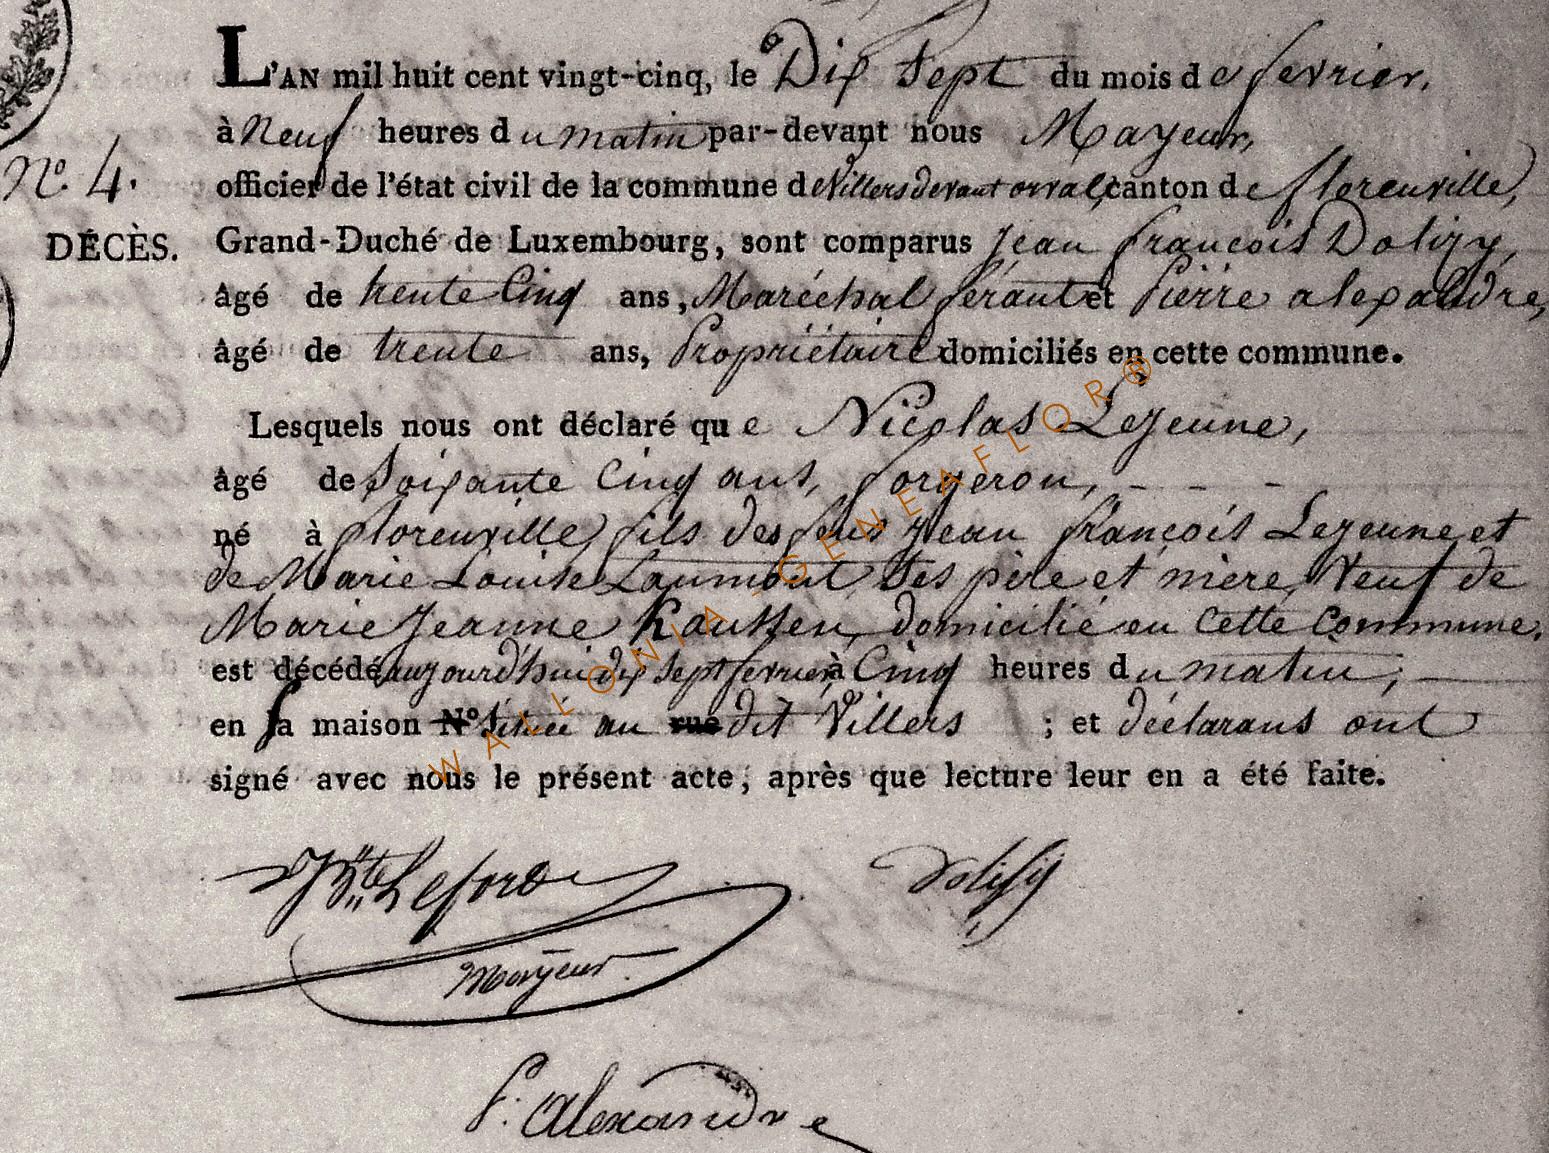 L'AN mil huit cent vingt-cinq, le Dix Sept du mois de fevrier,
à Neuf heures du matin par-devant nous Mayeur,
N.º 4.
officier de l'état civil de la commune de Villers devant orval, canton de florenville,
DÉCÈS.
Grand-Duché de Luxembourg, sont comparus Jean françois Dolizy,
âgé de trente Cinq ans, Maréchal férant et Pierre alexandre,
âgé de trente ans, Propriétaire domiciliés en cette commune.
Lesquels nous ont déclaré que Nicolas Lejeune,
âgé de Soixante Cinq ans, forgeron, - - - -
né à florenville, fils des feus Jean françois Lejeune et
de Marie Louise Laumont, Ses père et mère, Veuf de
Marie Jeanne domicilié en cette Commune.
est décédé aujourd'hui dix sept fevrier à Cinq heures du matin,
en sa maison N° située au rue dit Villers ; et déclarans ont
signé avec nous le présent acte, après que lecture leur en a été faite.
Dolizy
Mayeur
P. Alexandre
WALLONIA - GENEAFLOR®